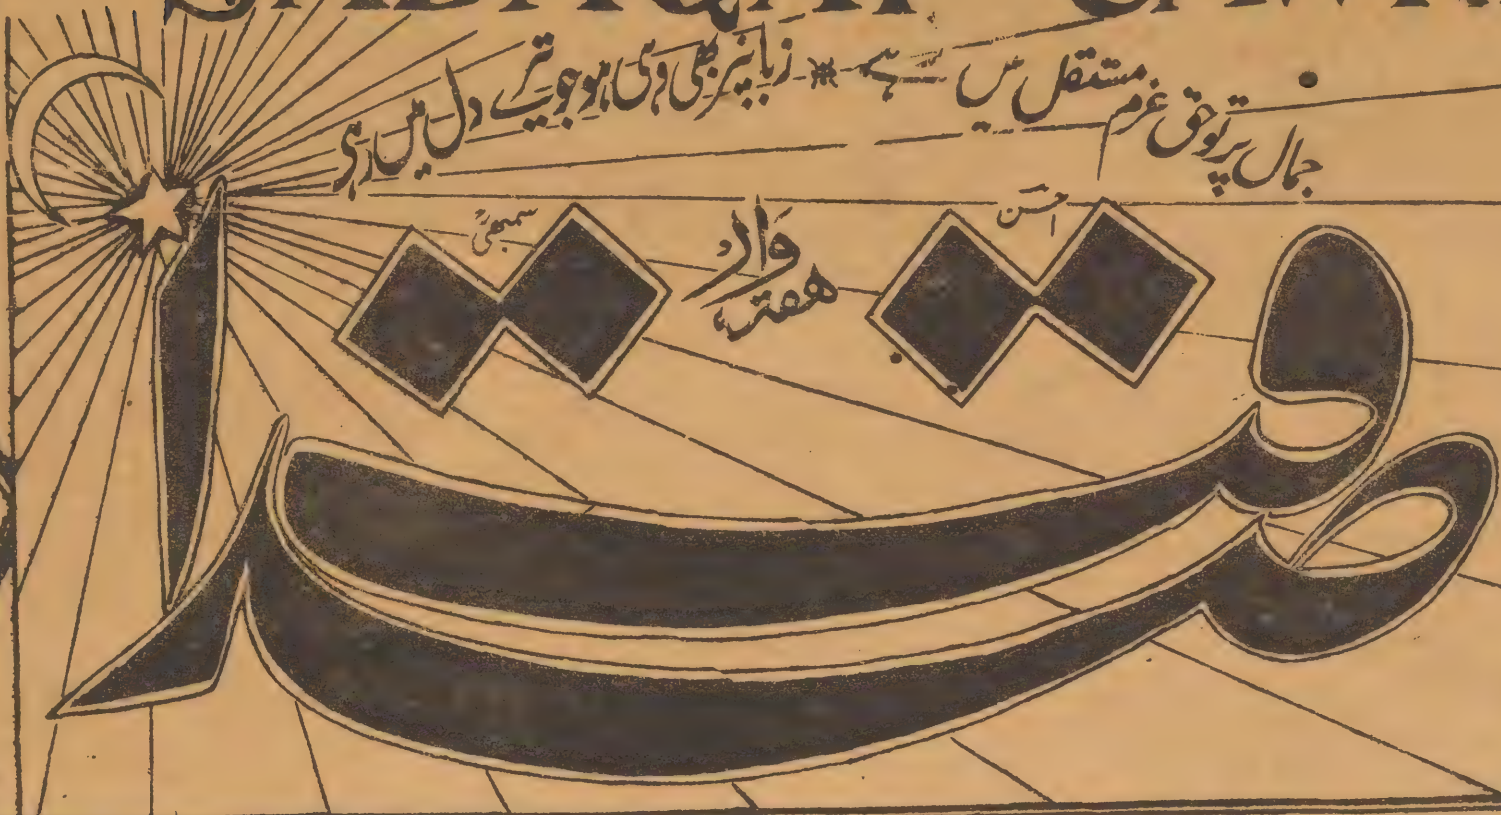 جمال پرتو حق عزم مستقل میں ہے * زبانپر بھی وہی ہو جو تیرے دل میں ہے
احسن
ہفتہ وار
صداقت